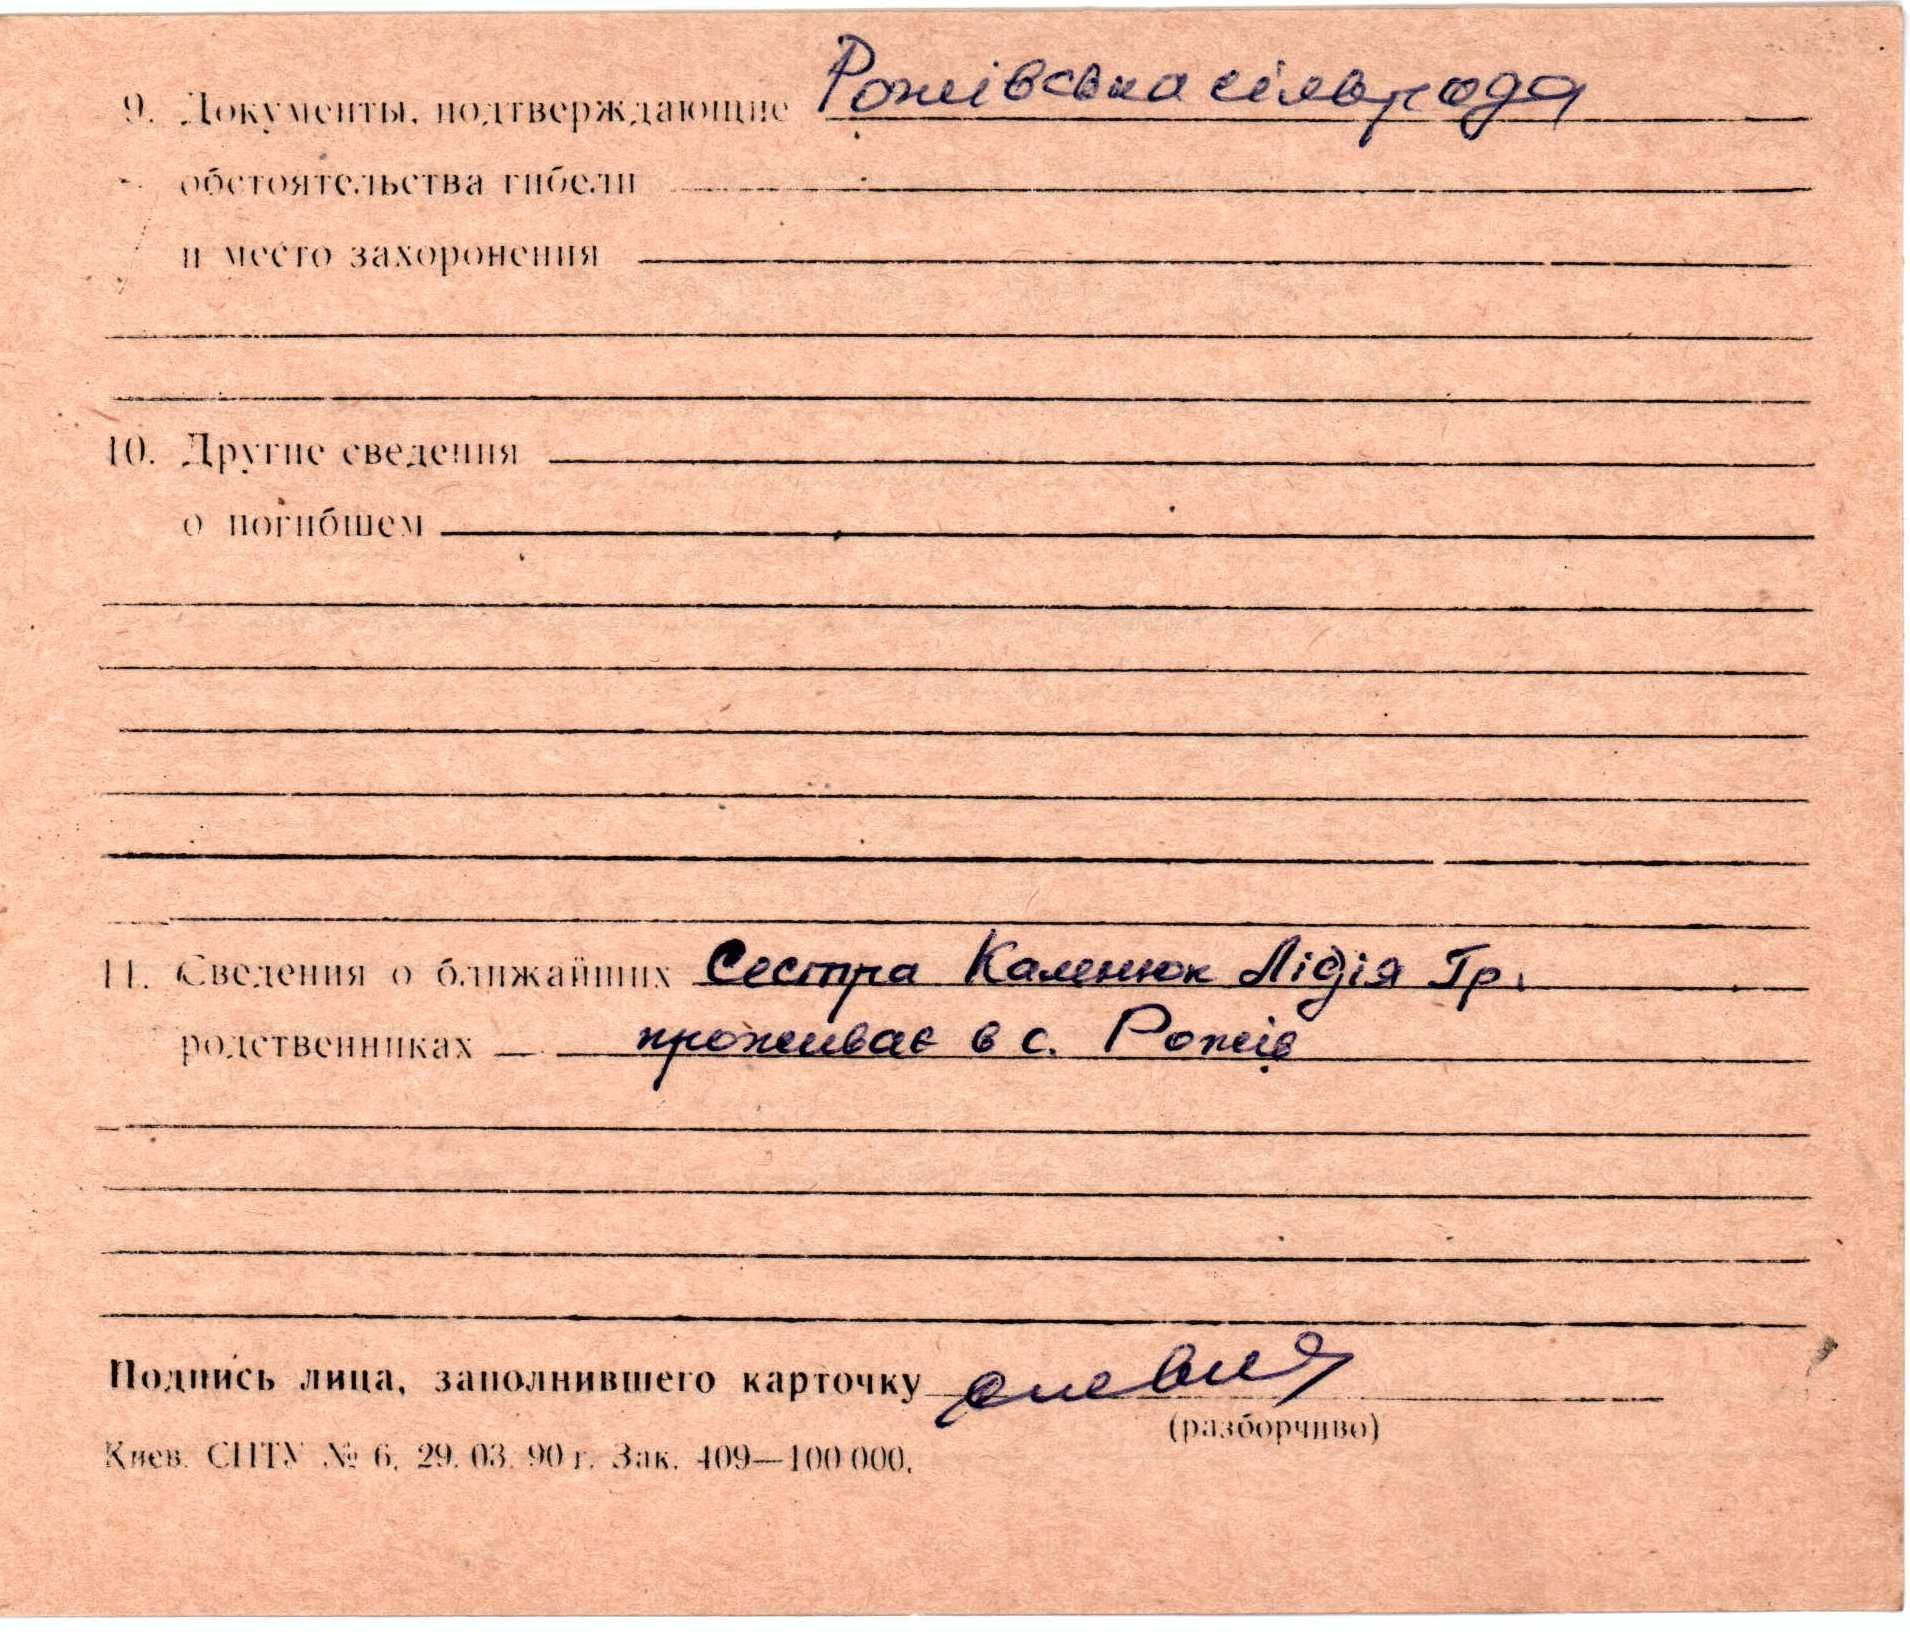 9. Документы, подтверждающие Рожівська сільрада
обстоятельства гибели
и место захоронения
10. Другие сведения
о погибшем
11. Сведения о ближайших Сестра Каленюк Лідія Гр.
родственниках проживає в с. Рожів
Подпись лица, заполнившего карточку
(разборчиво)
Киев. СПТУ № 6. 29. 03. 90 г. Зак. 409—100 000.